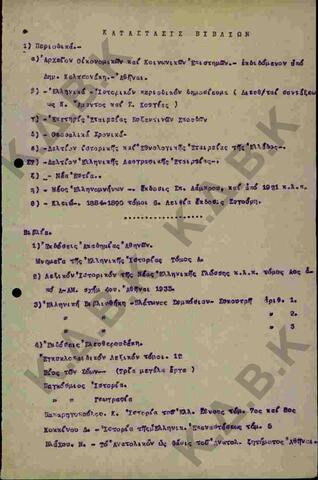 ΚΑΤΑΣΤΑΣΙΣ ΒΙΒΛΙΩΝ
1) Περιοδικά.-
α) Ἀρχεῖον Οἰκονομικῶν καί Κοινωνικῶν Ἐπιστημῶν.- ἐκδιδόμενον ὑπό
Δημ. Καλιτσουνάκη.-Ἀθῆναι.
β) -Ἑλληνικά - Ἱστορικόν περιοδικόν δημοσίευμα ( Διευθ/ταί συντάξεως
Κ. Ἄμαντος καί Σ. Κουγέας )
γ) -Ἐπετηρίς Ἑταιρείας Βυζαντινῶν Σπουδῶν
δ) - Θεσσαλικά Χρονικά-
ε) -Δελτίον ἱστορικῆς καί Ἐθνολογικῆς Ἑταιρείας τῆς Ἑλλάδος.-
ΣΤ) -Δελτίον Ἑλληνικῆς Λαογραφικῆς Ἑταιρείας.-
ζ) - Νέα Ἑστία.-
η) - Νέος Ἑλληνομνήμων -. Ἔκδοσις Σπ. Λάμπρου, καί ἀπό 1921 κ.λ.π.
θ) - Κλειώ.- 1884-1890 τόμοι 6. Λειψία ἔκδοσις
Βιβλία.
1) Ἐκδόσεις Ἀκαδημίας Ἀθηνῶν.
Μνημεῖα τῆς Ἑλληνικῆς Ἱστορίας Τόμος Α.
2) Λεξικόν Ἱστορικόν τῆς Νέας Ἑλληνικῆς Γλώσσης κ.λ.π. τόμος Αος ἀπό
Α-ΑΜ. σχῆμ. Ἀθῆναι 1933.
3) Ἑλληνική Βιβλιοθήκη -Πλάτωνος Συμπόσιον- Συκουτρῆ ἀριθ. 1.
" " 2.
" " 3
4) Ἐκδόσεις Ἐλευθερουδάκη.
Ἐγκυκλοπαιδικόν Λεξικόν τόμοι. 12
Βίος τῶν Ζώων.- (Τρία μεγάλα ἔργα )
Παγκόσμιος Ἱστορία.
" " Γεωγραφία
Παπαρηγοπούλου. Κ. Ἱστορία τοῦ Ἑλλ. Ἔθνους τόμ. 7ος καί 8ος
Κοκκίνου Δ. - Ἱστορία τῆς Ἑλληνικ. Ἐπαναστάσεως τόμ. 5
Βλάχου. Ν. - Τό Ἀνατολικόν ὡς φάσις τοῦ Ἀνατολ. ζητήματος Ἀθῆναι.
Κ.Α.Β.Κ
Κ.Α.Β.Κ